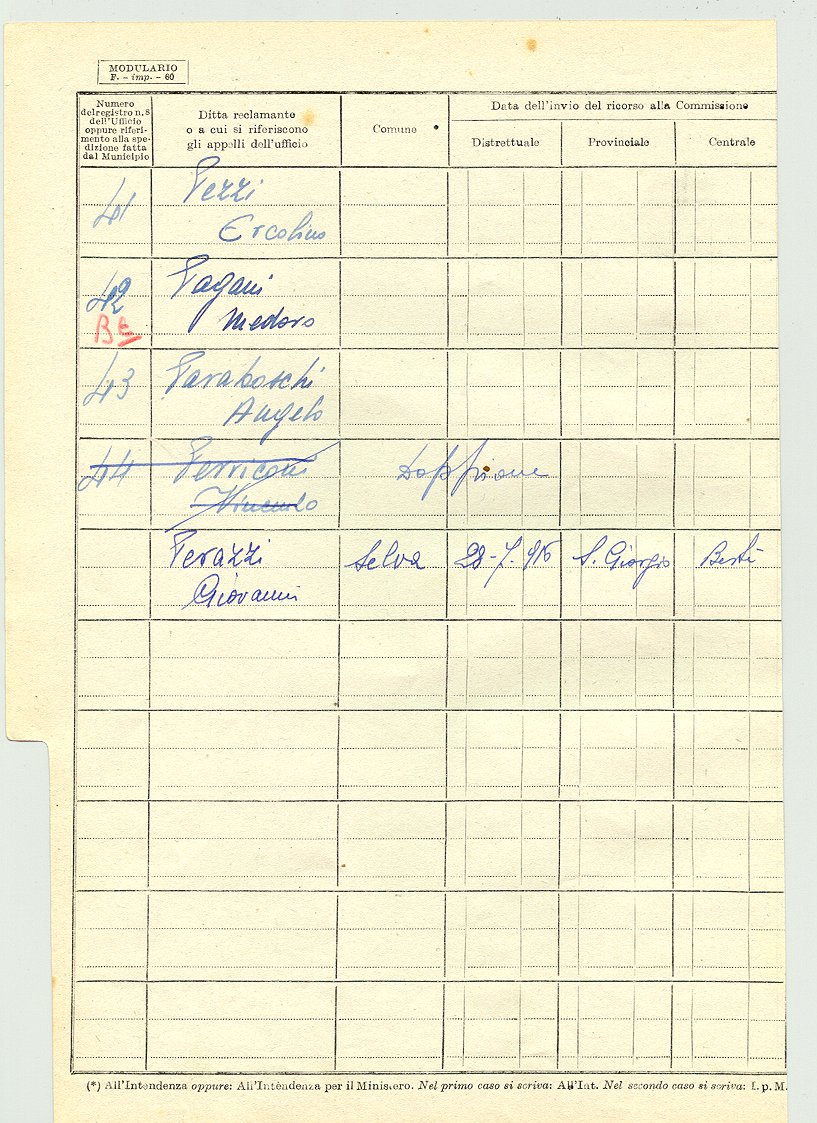 MODULARIO
F. - imp. - 60
Numero del registro n. 8 dell'Ufficio oppure riferimento alla spedizione fatta dal Municipio
Ditta reclamante
o a cui si riferiscono
gli appelli dell'ufficio
Comune
Data dell'invio del ricorso alla Commissione
Distrettuale
Provinciale
Centrale
41 Pezzi
Ercolino
42 Pagani
BE Medoro
43 Paraboschi
Angelo
44 Perriconi Doppione
Perazzi Selva 28-7-916 S. Giorgio Berti
Giovanni
(*) All'Intendenza oppure: All'Intendenza per il Ministero. Nel primo caso si scriva: All'Int. Nel secondo caso si scriva: I. p. M.